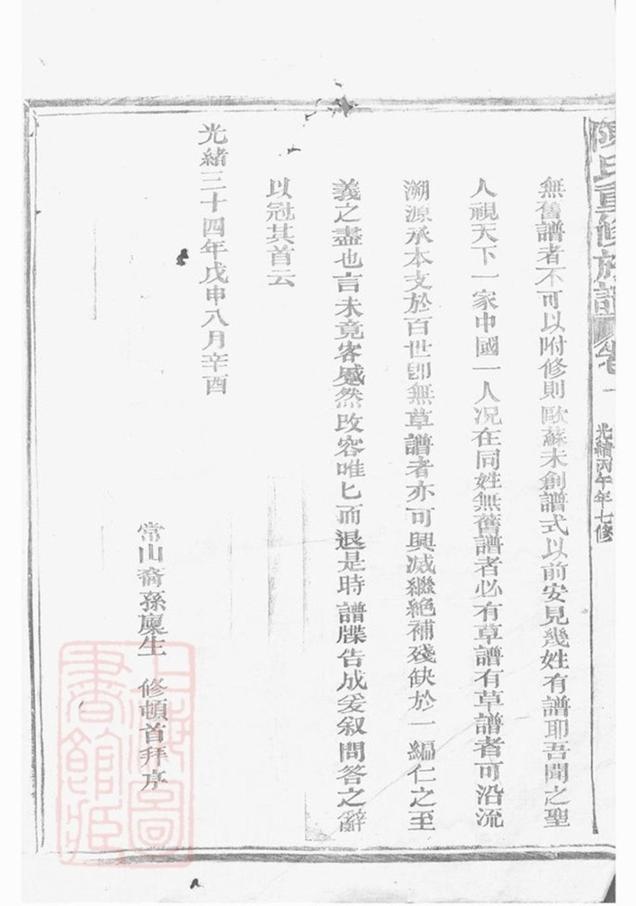 陳氏重修族譜 卷一 光緒丙午年七修
無舊譜者不可以附修則歐蘇未創譜式以前安見幾姓有譜耶吾聞之聖
人視天下一家中國一人况在同姓無舊譜者必有草譜有草譜者可沿流
溯源承本支於百世卽無草譜者亦可興滅繼絕補殘缺於一編仁之至
義之盡也言未竟客蹙然改容唯匕而退是時譜牒告成爰叙問答之辭
以冠其首云
光緒三十四年戊申八月辛酉
常山裔孫廩生 修頓首拜序
上海圖書館藏